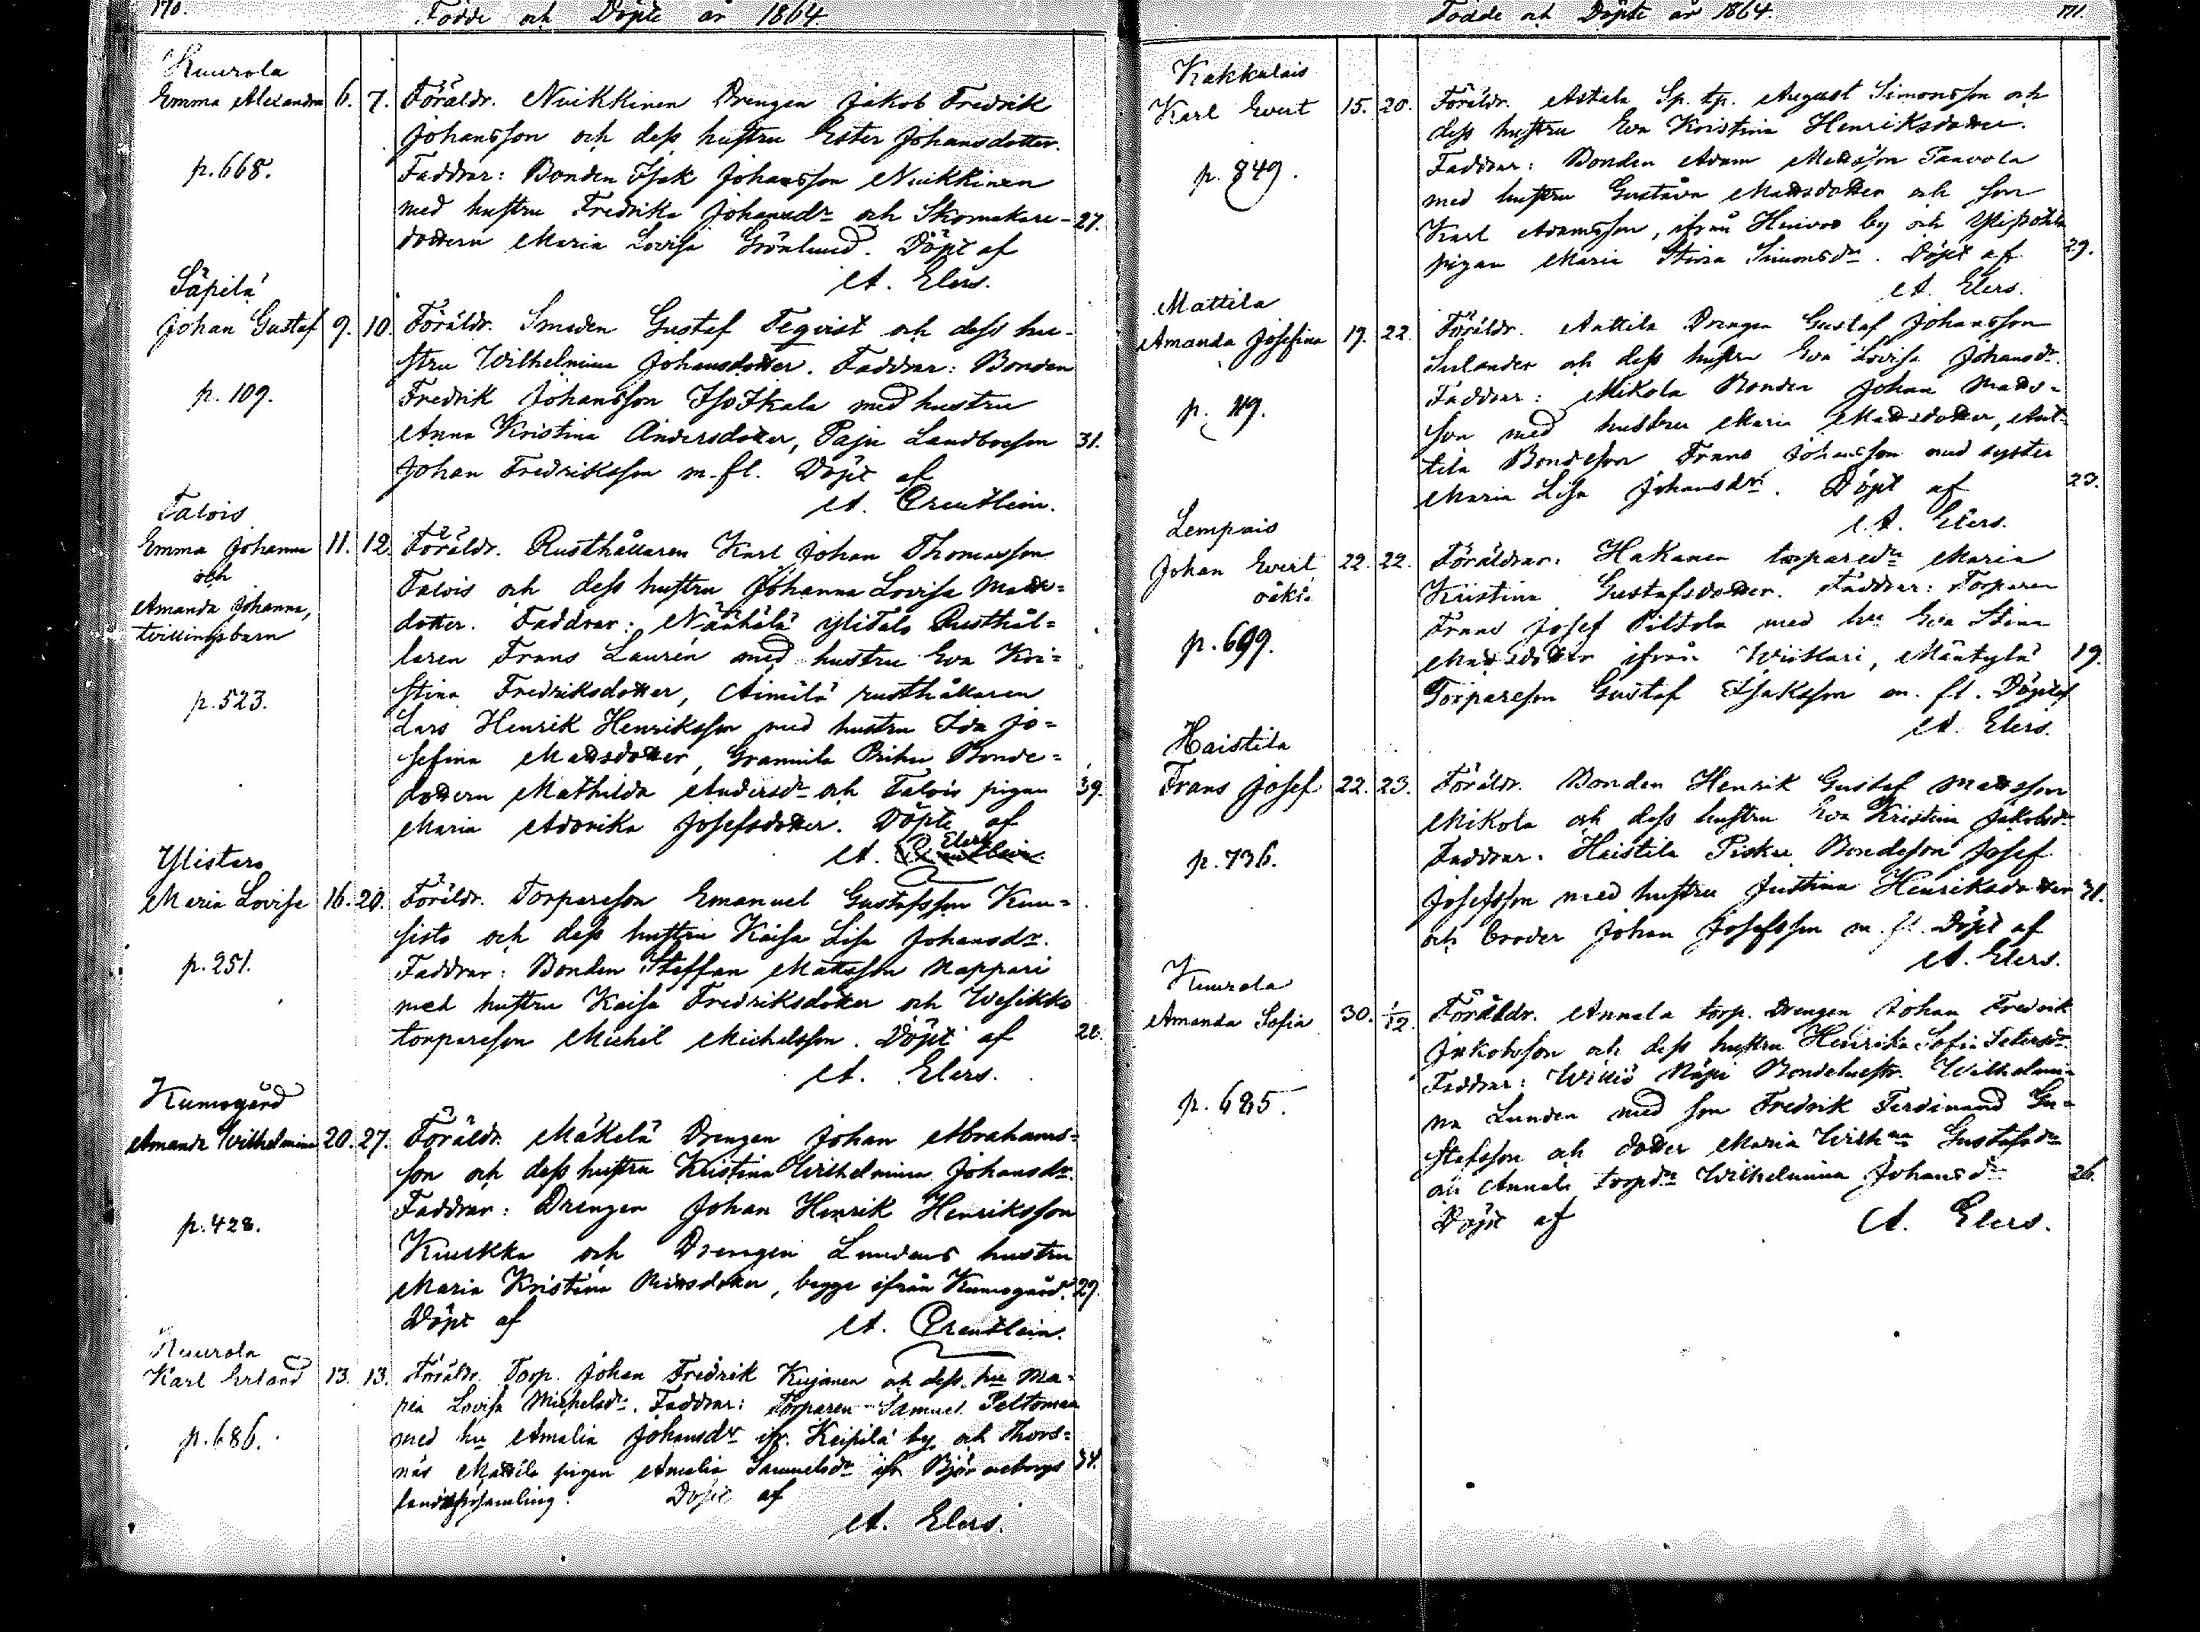 170. Födde och Döpte år 1864
Kuurola
Emma Alexandra 6. 7. Föräldr. Nuikkinen Drengen Jakob Fredrik
Johansson och dess hustru Ester Johansdotter.
p. 668. Faddrar: Bonden Isak Johansson Nuikkinen
med hustru Fredrika Johansdr och Skomakare- 27.
dottern Maria Lovisa Grönlund. Döpt af
A. Elers.
Säpilä
Johan Gustaf 9. 10. Föräldr. Smeden Gustaf Tegvist och dess hu-
stru Wilhelmina Johansdotter. Faddrar: Bonden
p. 109. Fredrik Johansson Iso Ikala med hustru
Anna Kristina Andersdotter, Paju Landboeson 31.
Johan Fredriksson m. fl. Döpt af
A. Creutlein.
Talois
Emma Johanna 11. 12. Föräldr. Rusthållaren Karl Johan Thomasson
och
Talois och dess hustru Johanna Lovisa Matts=
Amanda Johanna,
dotter. Faddrar: Näähälä Ylitalo Rusthål=
tvillingsbarn
laren Frans Laurén med hustru Eva Kri=
p. 523. stina Fredriksdotter, Aimälä rusthållaren
Lars Henrik Henriksson med hustru Ida Jo=
sefina Mattsdotter, Grannila Prihu Bonde=
dottern Mathilda Andersdr och Talois pigan 39.
Maria Adovika Josefsdotter. Döpte af
A. Elers
Ylistaro
Maria Lovisa 16. 20. Föräldr. Torpareson Emanuel Gustafsson Kuu=
sisto och dess hustru Kaisa Lisa Johansdr.
p. 251. Faddrar: Bonden Steffan Mattsson Nappari
med hustru Kaisa Fredriksdotter och Wesikko
torpareson Michel Michelsson. Döpt af 26.
A. Elers.
Kumogård
Amanda Wilhelmina 20. 27. Föräldr. Mäkelä Drengen Johan Abrahams=
son och dess hustru Kristina Wilhelmina Johansdr.
p. 428. Faddrar: Drengen Johan Henrik Henriksson
Kuukka och Drengen Lundens hustru
Maria Kristina Mattsdotter, begge ifrån Kumogård. 29.
Döpt af A. Creutlein.
Kuurola
Karl Erland 13. 13. Föräldr. Torp. Johan Fredrik Kujanen och dess hu Ma=
ria Lovisa Michelsdr. Faddrar: Torparen Samuel Peltomaa
p. 686. med hu Amalia Johansdr ifr. Keipilä by och Thors=
näs Mattila pigan Amalia Samuelsdr ifr Björneborgs 34.
landsförsamling. Döpt af
A. Elers.
Födde och Döpte år 1864. 171.
Kakkulais
Karl Evert 15. 20. Föräldr. Astala Sp. tp. August Simonsson och
dess hustru Eva Kristina Henriksdotter.
p. 849. Faddrar: Bonden Adam Mattsson Taavola
med hustru Gustava Mattsdotter och son
Karl Adamsson, ifrån Heinoo by och
pigan Maria Stina Simonsdr. Döpt af 29.
A. Elers.
Mattila
Amanda Josefina 19. 22. Föräldr. Anttila Drengen Gustaf Johansson
Sulander och dess hustru Eva Lovisa Johansdr.
p. 119. Faddrar: Mikola Bonden Johan Matts=
son med hustru Maria Mattsdotter, Ant=
tila Bondeson Frans Johansson med syster
Maria Lisa Johansdr. Döpt af 23.
A. Elers.
Lempais
Johan Evert 22. 22. Föräldrar: Hakanen torparedr Maria
oäkt.
Kristina Gustafsdotter. Faddrar: Torparen
p. 699. Frans Josef Piltola med hu Eva Stina
Mattsdotter ifrån Wiikari, Mäntylä 19.
Torpareson Gustaf Isaksson m. fl. Döpt af
A. Elers.
Haistila
Frans Josef 22. 23. Föräldr. Bonden Henrik Gustaf Mattsson
Mikola och dess hustru Eva Kristina Jakobsdr
p. 736. Faddrar. Haistila Pisku Bondeson Josef
Josefsson med hustru Justina Henriksdotter 31.
och broder Johan Josefsson m. fl. Döpt af
A. Elers.
Kuurola
Amanda Sofia 30. 1/12. Föräldr. Annala torp. Drengen Johan Fredrik
Jakobsson och dess hustru Henrika Sofia Petersdr
p. 685. Faddrar: Wittiö Näpi Bondehustr. Wilhelmi-
na Lunden med son Fredrik Ferdinand Gu=
stafsson och dotter Maria Wilhna Gustafsdr
och Annala torpdr Wilhelmina Johansdr 26.
Döpt af A. Elers.